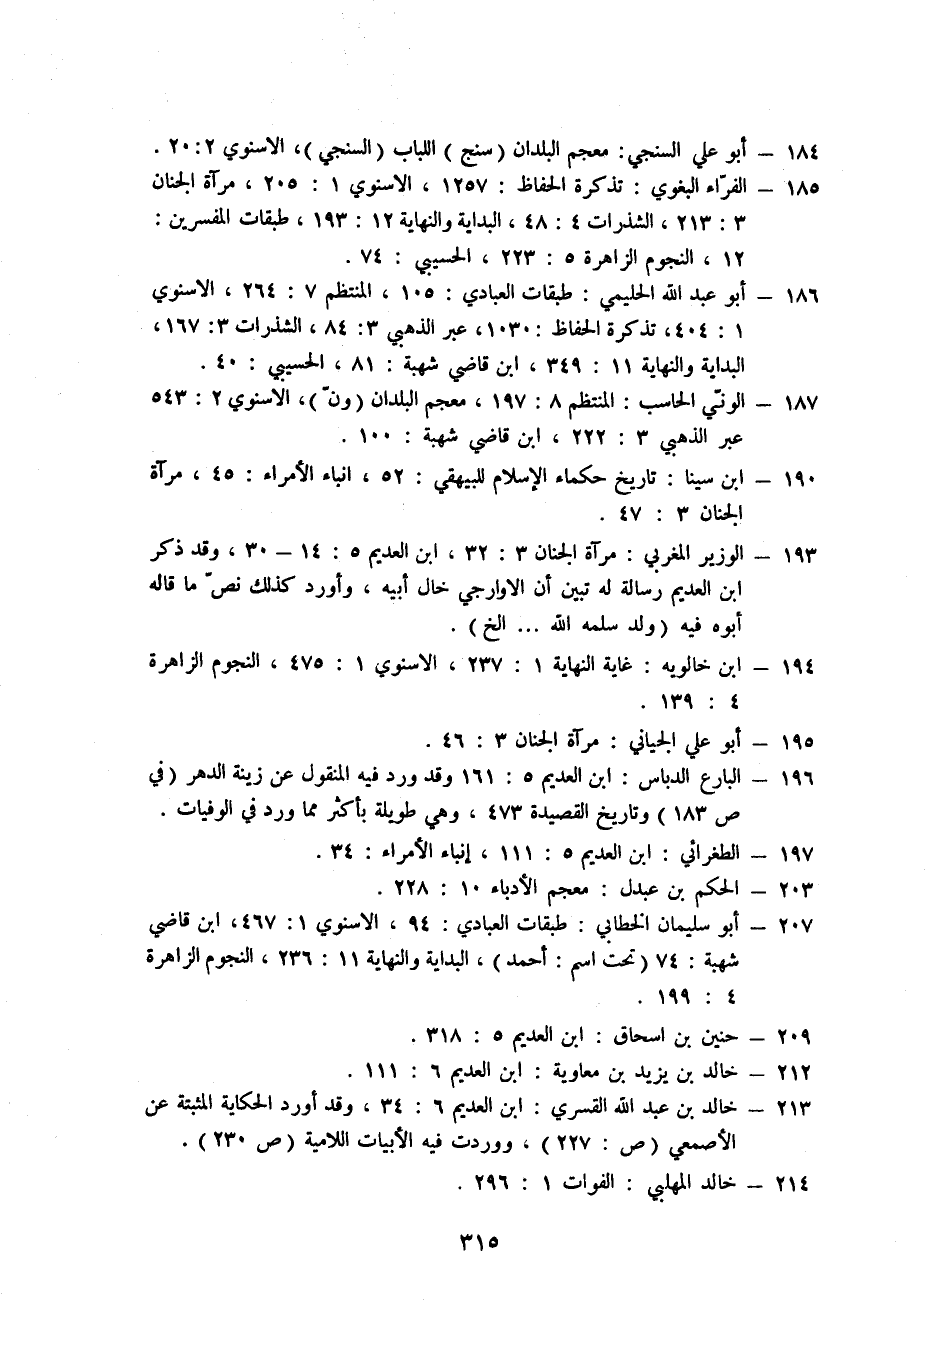 ١٨٤ – أبو علي السنجي: معجم البلدان (سنج) اللباب (السنجي)، الاسنوي ٢: ٢٠.
١٨٥ – الفرّاء البغوي : تذكرة الحفاظ : ١٢٥٧ ، الاسنوي ١ : ٢٠٥ ، مرآة الجنان
٣ : ٢١٣ ، الشذرات ٤ : ٤٨ ، البداية والنهاية ١٢ : ١٩٣ ، طبقات المفسرين :
١٢ ، النجوم الزاهرة ٥ : ٢٢٣ ، الحسيبي : ٧٤ .
١٨٦ – أبو عبد الله الحليمي : طبقات العبادي : ١٠٥ ، المنتظم ٧ : ٢٦٤ ، الاسنوي
١ : ٤٠٤، تذكرة الحفاظ : ١٠٣٠، عبر الذهبي ٣: ٨٤ ، الشذرات ٣: ١٦٧،
البداية والنهاية ١١ : ٣٤٩ ، ابن قاضي شهبة : ٨١ ، الحسيبي : ٤٠ .
١٨٧ – الونّي الحاسب : المنتظم ٨ : ١٩٧ ، معجم البلدان (ونّ)، الاسنوي ٢ : ٥٤٣
عبر الذهبي ٣ : ٢٢٢ ، ابن قاضي شهبة : ١٠٠ .
١٩٠ – ابن سينا : تاريخ حكماء الإسلام للبيهقي : ٥٢ ، انباء الأمراء : ٤٥ ، مرآة
الجنان ٣ : ٤٧ .
١٩٣ – الوزير المغربي : مرآة الجنان ٣ : ٣٢ ، ابن العديم ٥ : ١٤ – ٣٠ ، وقد ذكر
ابن العديم رسالة له تبين أن الاوارجي خال أبيه ، وأورد كذلك نصّ ما قاله
أبوه فيه (ولد سلمه الله ... الخ) .
١٩٤ – ابن خالويه : غاية النهاية ١ : ٢٣٧ ، الاسنوي ١ : ٤٧٥ ، النجوم الزاهرة
٤ : ١٣٩ .
١٩٥ – أبو علي الجياني : مرآة الجنان ٣ : ٤٦ .
١٩٦ – البارع الدباس : ابن العديم ٥ : ١٦١ وقد ورد فيه المنقول عن زينة الدهر (في
ص ١٨٣) وتاريخ القصيدة ٤٧٣ ، وهي طويلة بأكثر مما ورد في الوفيات .
١٩٧ – الطغرائي : ابن العديم ٥ : ١١١ ، إنباء الأمراء : ٣٤ .
٢٠٣ – الحكم بن عبدل : معجم الأدباء ١٠ : ٢٢٨ .
٢٠٧ – أبو سليمان الخطابي : طبقات العبادي : ٩٤ ، الاسنوي ١: ٤٦٧، ابن قاضي
شهبة : ٧٤ (تحت اسم : أحمد) ، البداية والنهاية ١١ : ٢٣٦ ، النجوم الزاهرة
٤ : ١٩٩ .
٢٠٩ – حنين بن اسحاق : ابن العديم ٥ : ٣١٨ .
٢١٢ – خالد بن يزيد بن معاوية : ابن العديم ٦ : ١١١ .
٢١٣ – خالد بن عبد الله القسري : ابن العديم ٦ : ٣٤ ، وقد أورد الحكاية المثبتة عن
الأصمعي (ص : ٢٢٧) ، ووردت فيه الأبيات اللامية (ص ٢٣٠) .
٢١٤ – خالد المهلبي : الفوات ١ : ٢٩٦ .
٣١٥